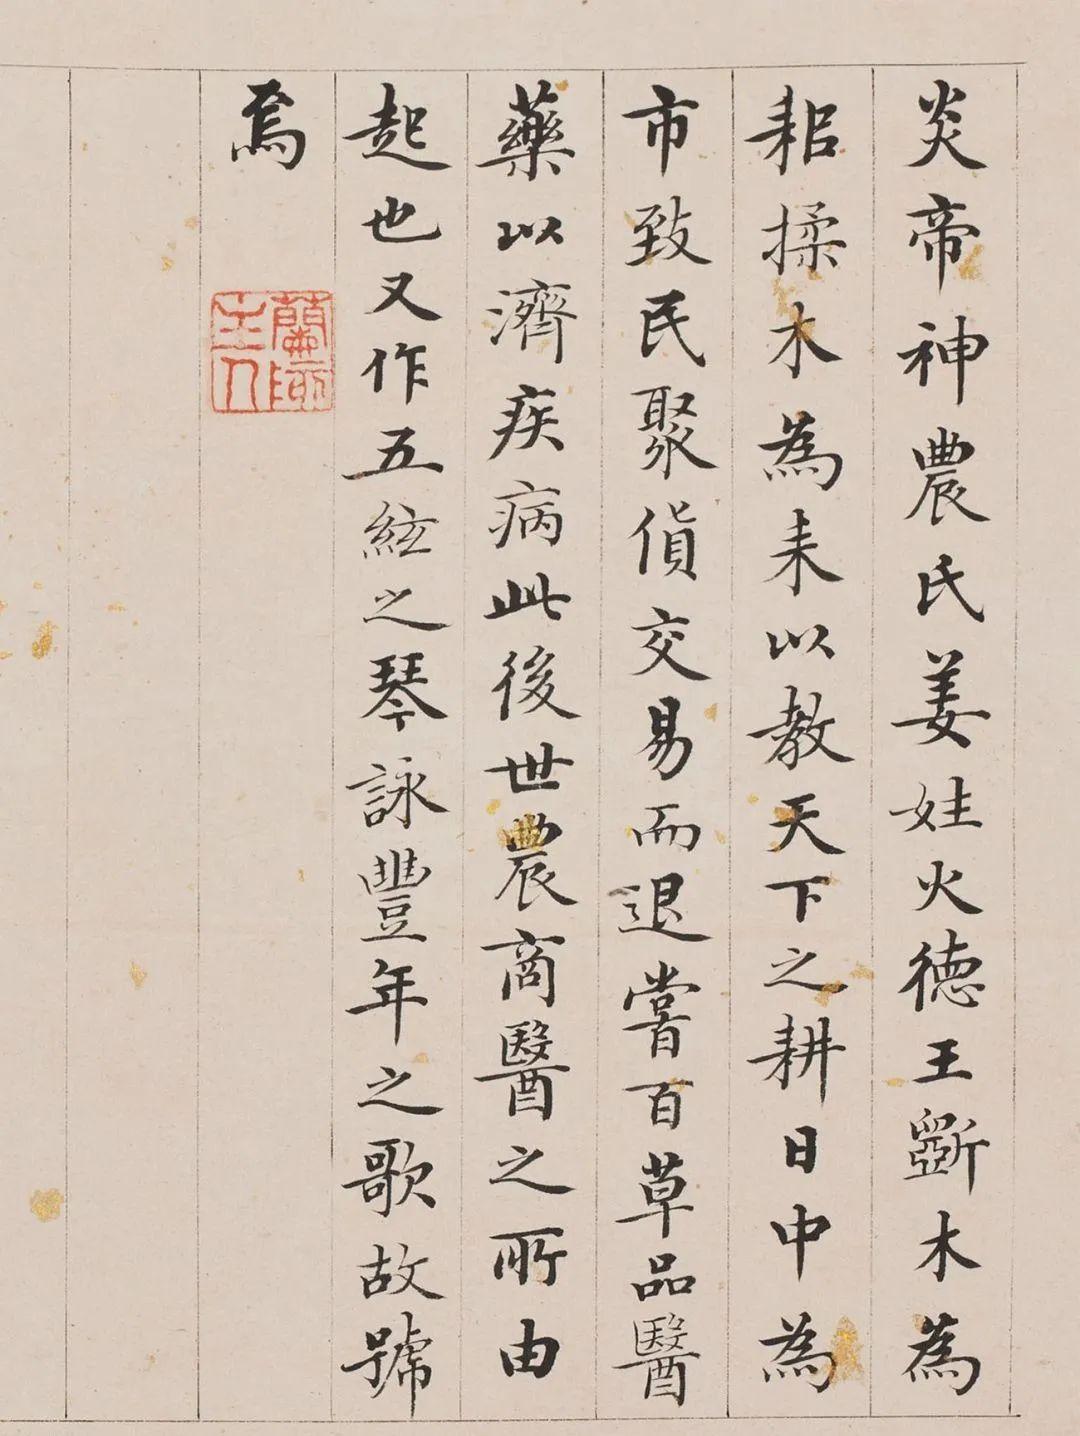 炎帝神農氏姜姓火德王斵木為
耜揉木為耒以教天下之耕日中為
市致民聚貨交易而退嘗百草品醫
藥以濟疾病此後世農商醫之所由
起也又作五絃之琴詠豐年之歌故號
焉
蘭隃
主人